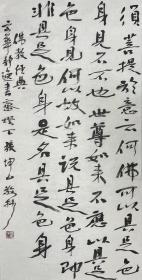 須菩提於意云何佛可以具足色
身見不不也世尊如来不應以具足
色身見何以故如来説具足色身即
非具足色身是名具足色身
佛教經典
書齋燈下張坤山敬抄